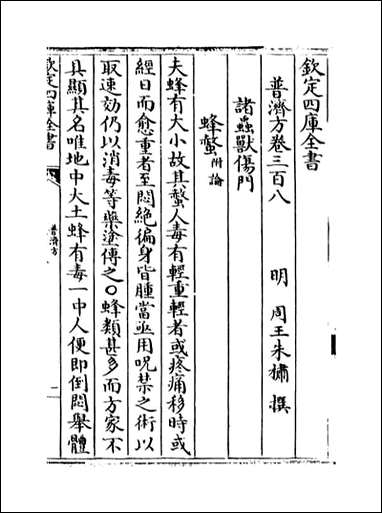 欽定四庫全書
普濟方卷三百八
明 周王朱橚 撰
諸蟲獸傷門
蜂螫附論
夫蜂有大小故其螫人毒有輕重輕者或疼痛移時或
經日而愈重者至悶絶徧身皆腫當亟用呪禁之術以
取速効仍以消毒等藥塗傅之〇蜂類甚多而方家不
具顯其名唯地中大土蜂有毒一中人便即倒悶舉體
欽定四庫全書
普濟方
一